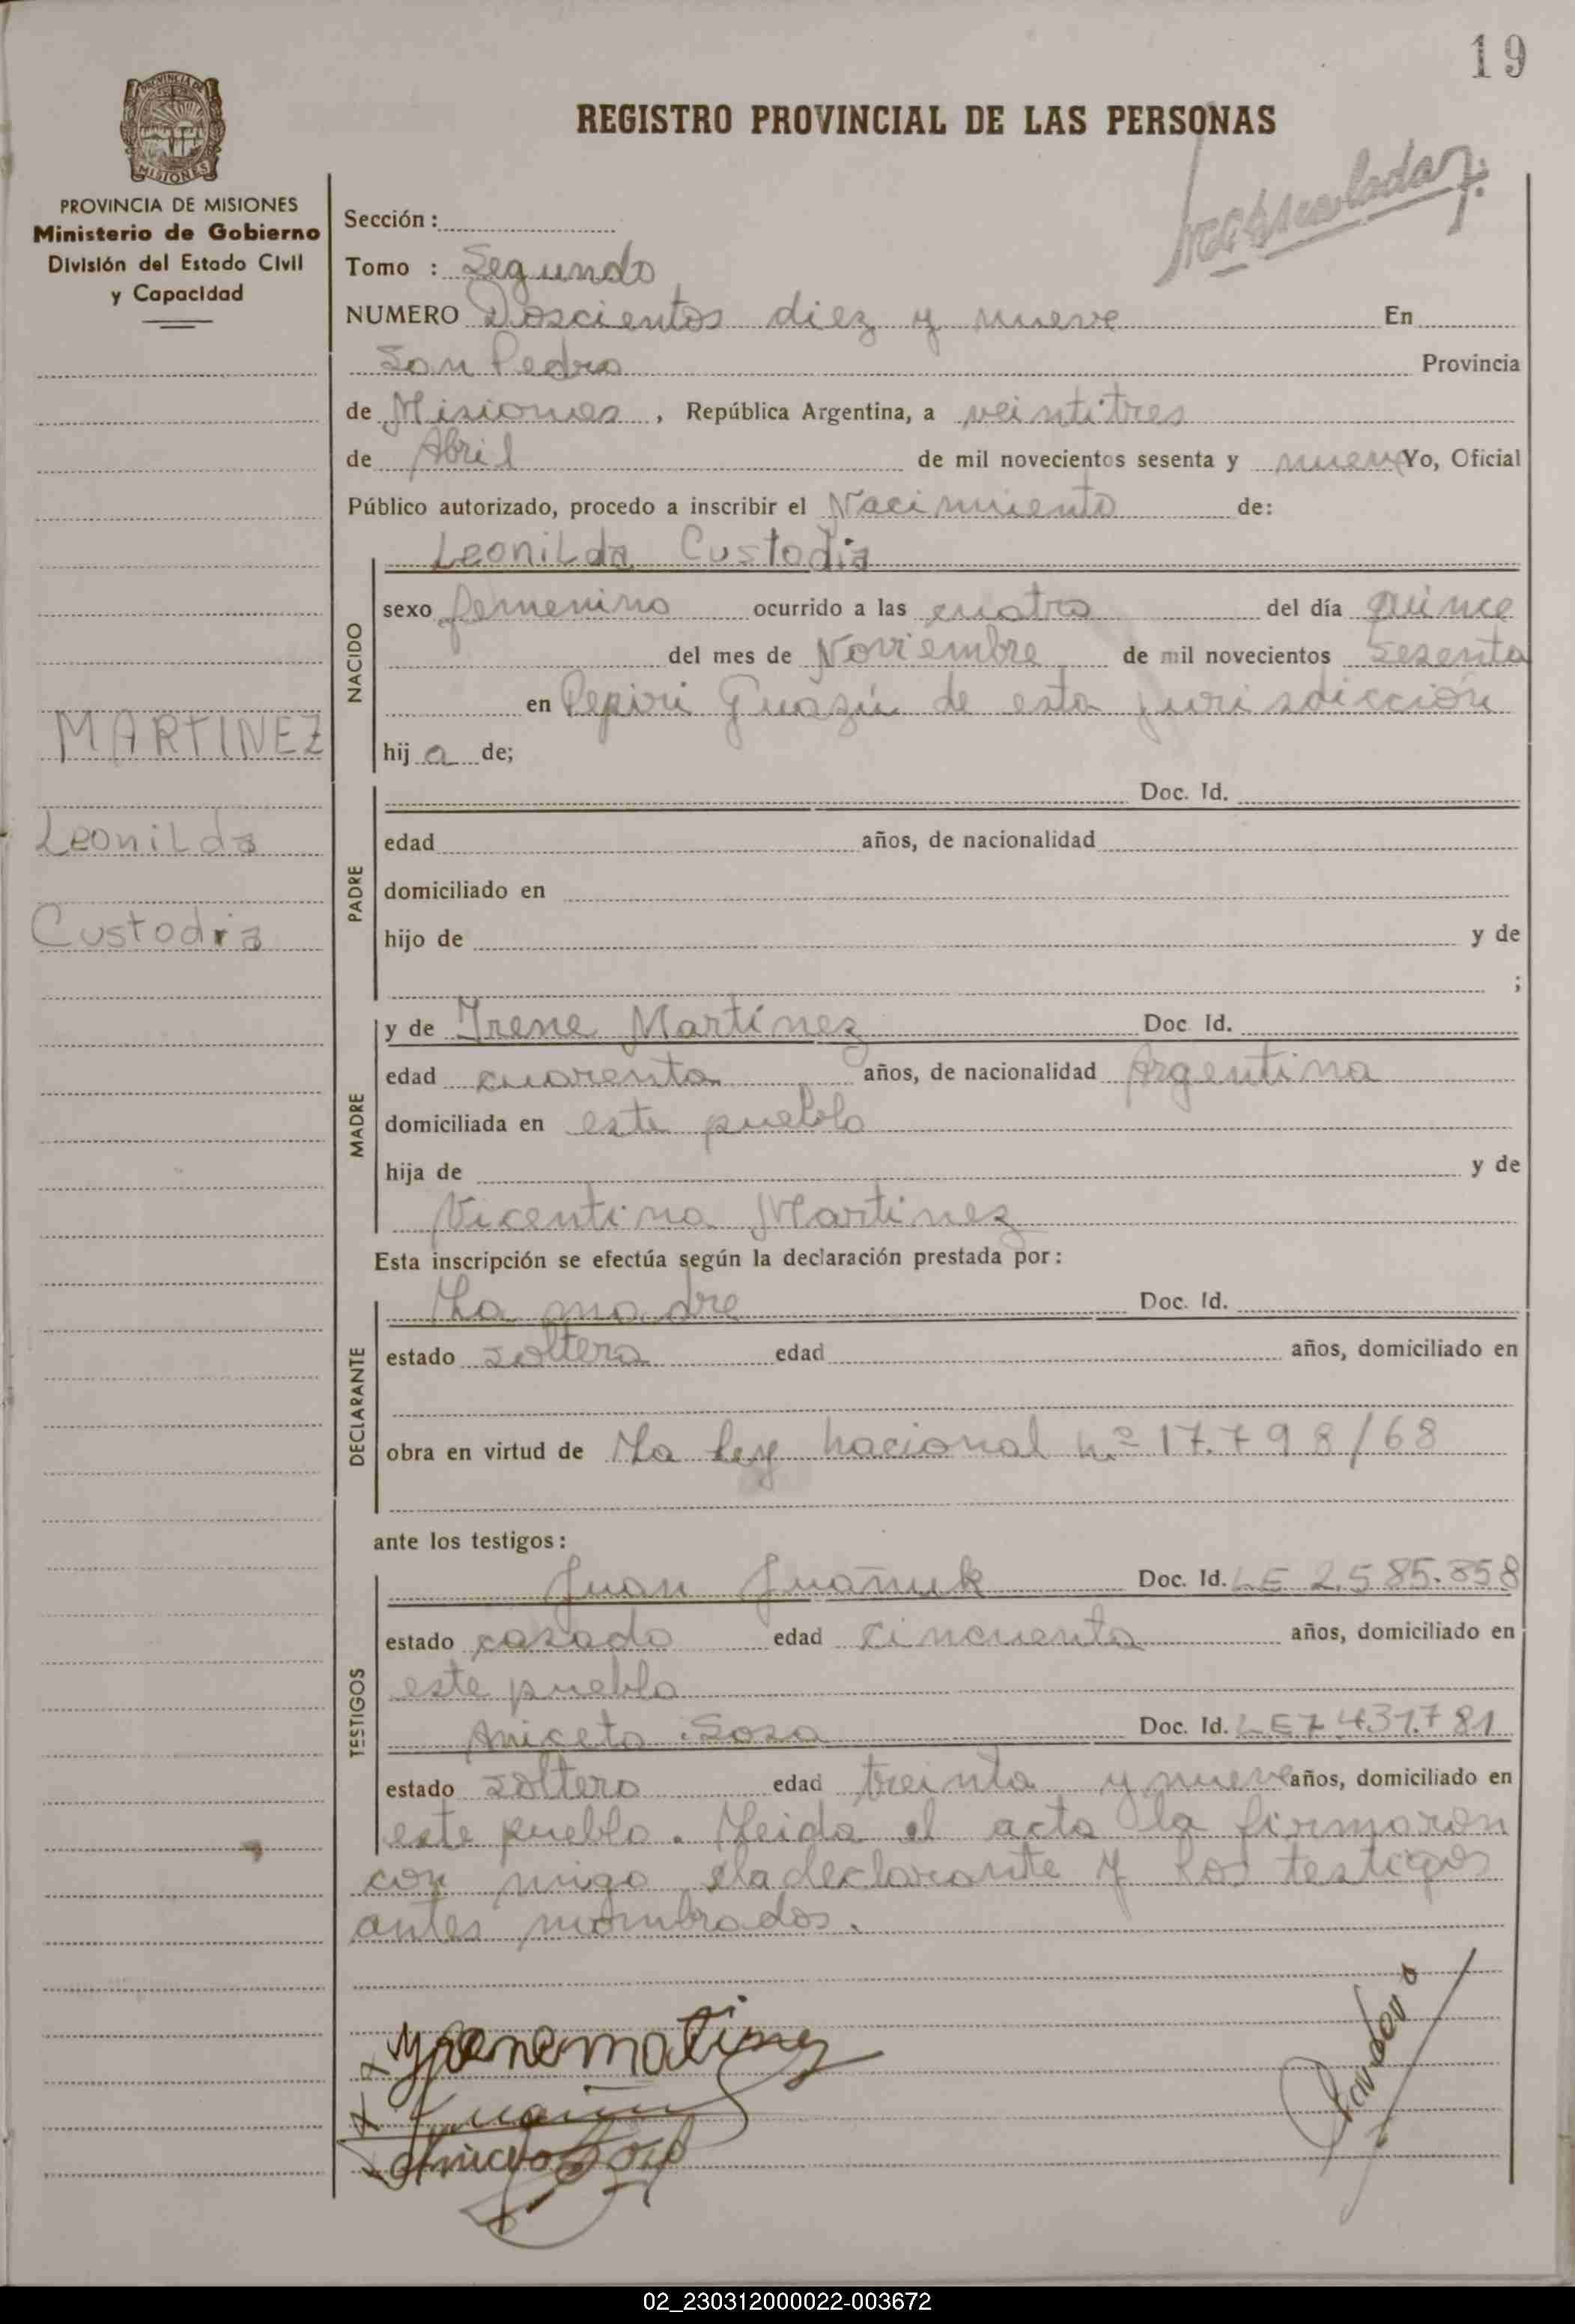 19
REGISTRO PROVINCIAL DE LAS PERSONAS
PROVINCIA DE MISIONES
MISIONES
PROVINCIA DE MISIONES
Ministerio de Gobierno
División del Estado Civil
y Capacidad
MARTINEZ
Leonilda
Custodia
Sección :
Tomo : Segundo
NUMERO Doscientos diez y nueve En
San Pedro Provincia
de Misiones , República Argentina, a veintitres
de Abril de mil novecientos sesenta y nueve Yo, Oficial
Público autorizado, procedo a inscribir el Nacimiento de:
NACIDO
Leonilda Custodia
sexo femenino ocurrido a las cuatro del día quince
del mes de Noviembre de mil novecientos sesenta
en Pepiri Guazú de esta jurisdicción
hij a de;
PADRE
Doc. Id.
edad años, de nacionalidad
domiciliado en
hijo de y de
;
MADRE
y de Irene Martínez Doc Id.
edad cuarenta años, de nacionalidad Argentina
domiciliada en este pueblo
hija de y de
Vicentina Martinez
Esta inscripción se efectúa según la declaración prestada por :
DECLARANTE
La madre Doc. Id.
estado soltera edad años, domiciliado en
obra en virtud de La ley nacional nº 17.798/68
ante los testigos :
TESTIGOS
Juan Doc. Id. LE 2.585.858
estado casado edad cincuenta años, domiciliado en
este pueblo
Aniceto Sosa Doc. Id. LE 7.431.781
estado soltero edad treinta y nueve años, domiciliado en
este pueblo. Leida el acta la firmaron
con migo la declarante y los testigos
antes nombrados.
02_230312000022-003672